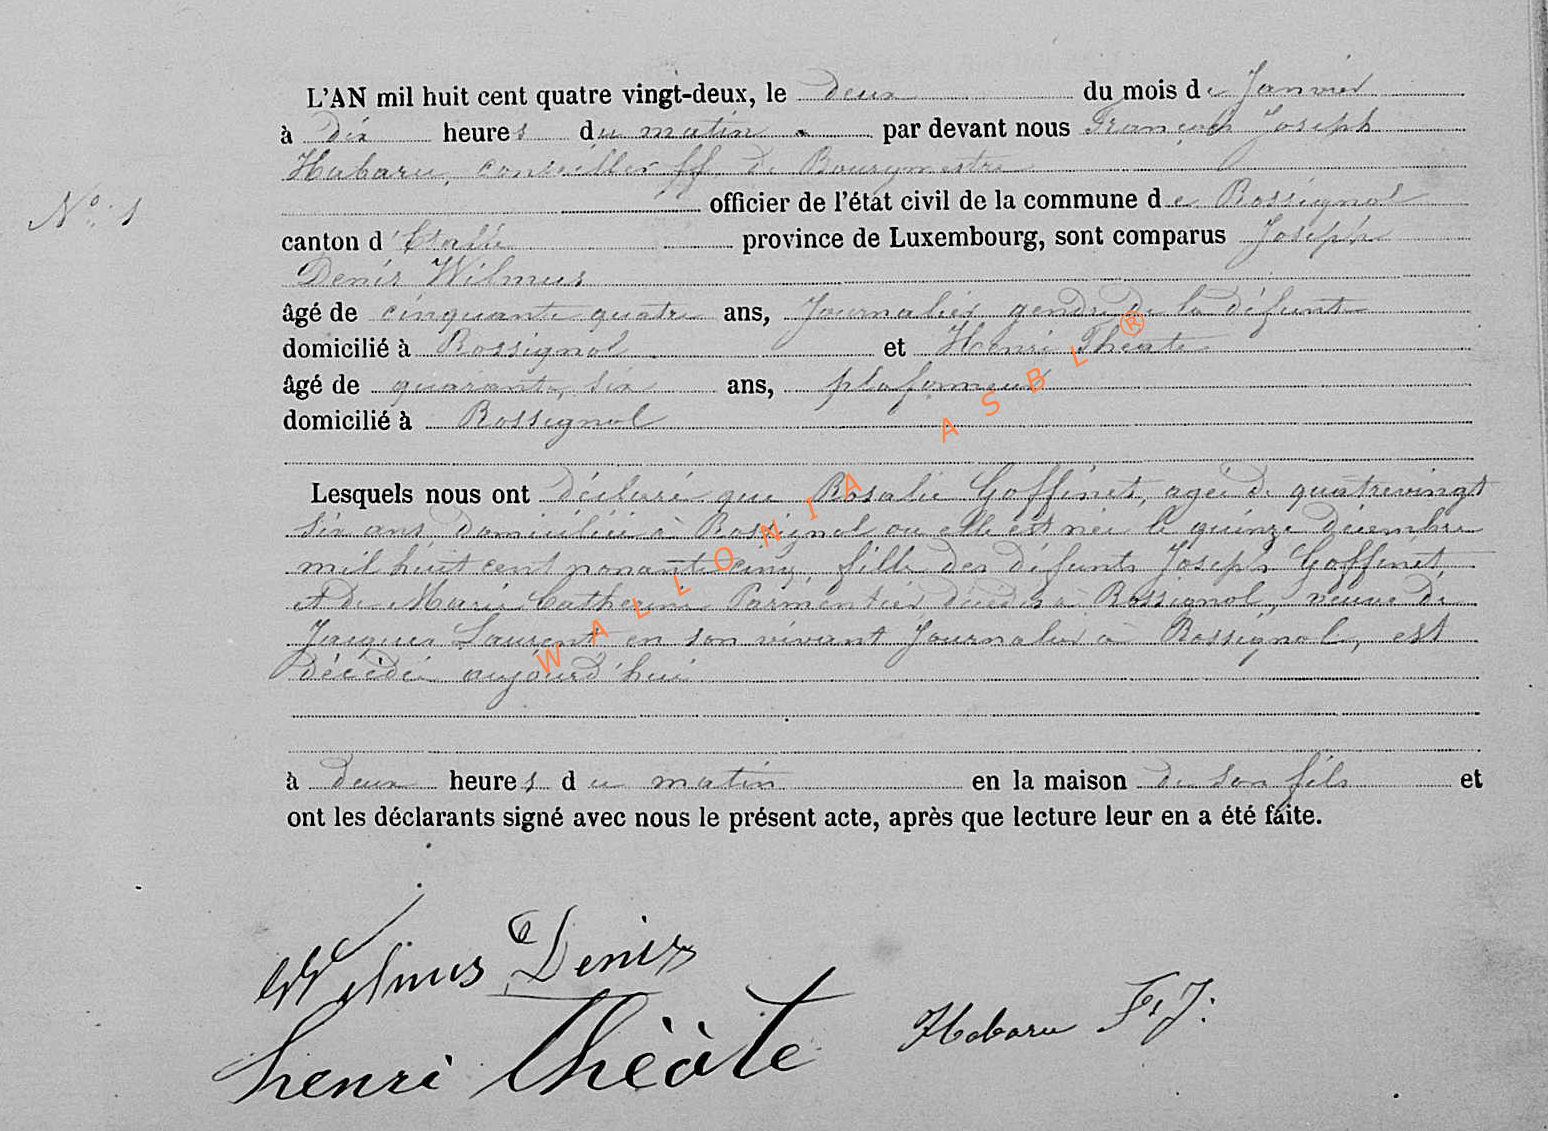 L'AN mil huit cent quatre vingt-deux, le deux du mois de Janvier
à dix heures du matin par devant nous François Joseph
Habaru, conseiller ff de Bourgmestre
N° 1
officier de l'état civil de la commune de Rossignol
canton d'Etalle province de Luxembourg, sont comparus Joseph
Denis Wilmus
âgé de cinquante quatre ans, Journalier gendre de la défunte
domicilié à Rossignol et Henri Théate
âgé de quarante six ans, plafonneur
domicilié à Rossignol
Lesquels nous ont déclaré que Rosalie Goffinet, agée de quatrevingt
six ans domiciliée à Rossignol ou elle est née le quinze décembre
mil huit cent nonante cinq, fille des défunts Joseph Goffinet
et de Marie Catherine Parmentier décédés à Rossignol, veuve de
Jacques Laurent en son vivant Journalier à Rossignol, est
décédée aujourd'hui
à deux heures du matin en la maison de son fils et
ont les déclarants signé avec nous le présent acte, après que lecture leur en a été faite.
Wilmus Denis
henri thèàte
Habaru F. J.
WALLONIA ASBL ®